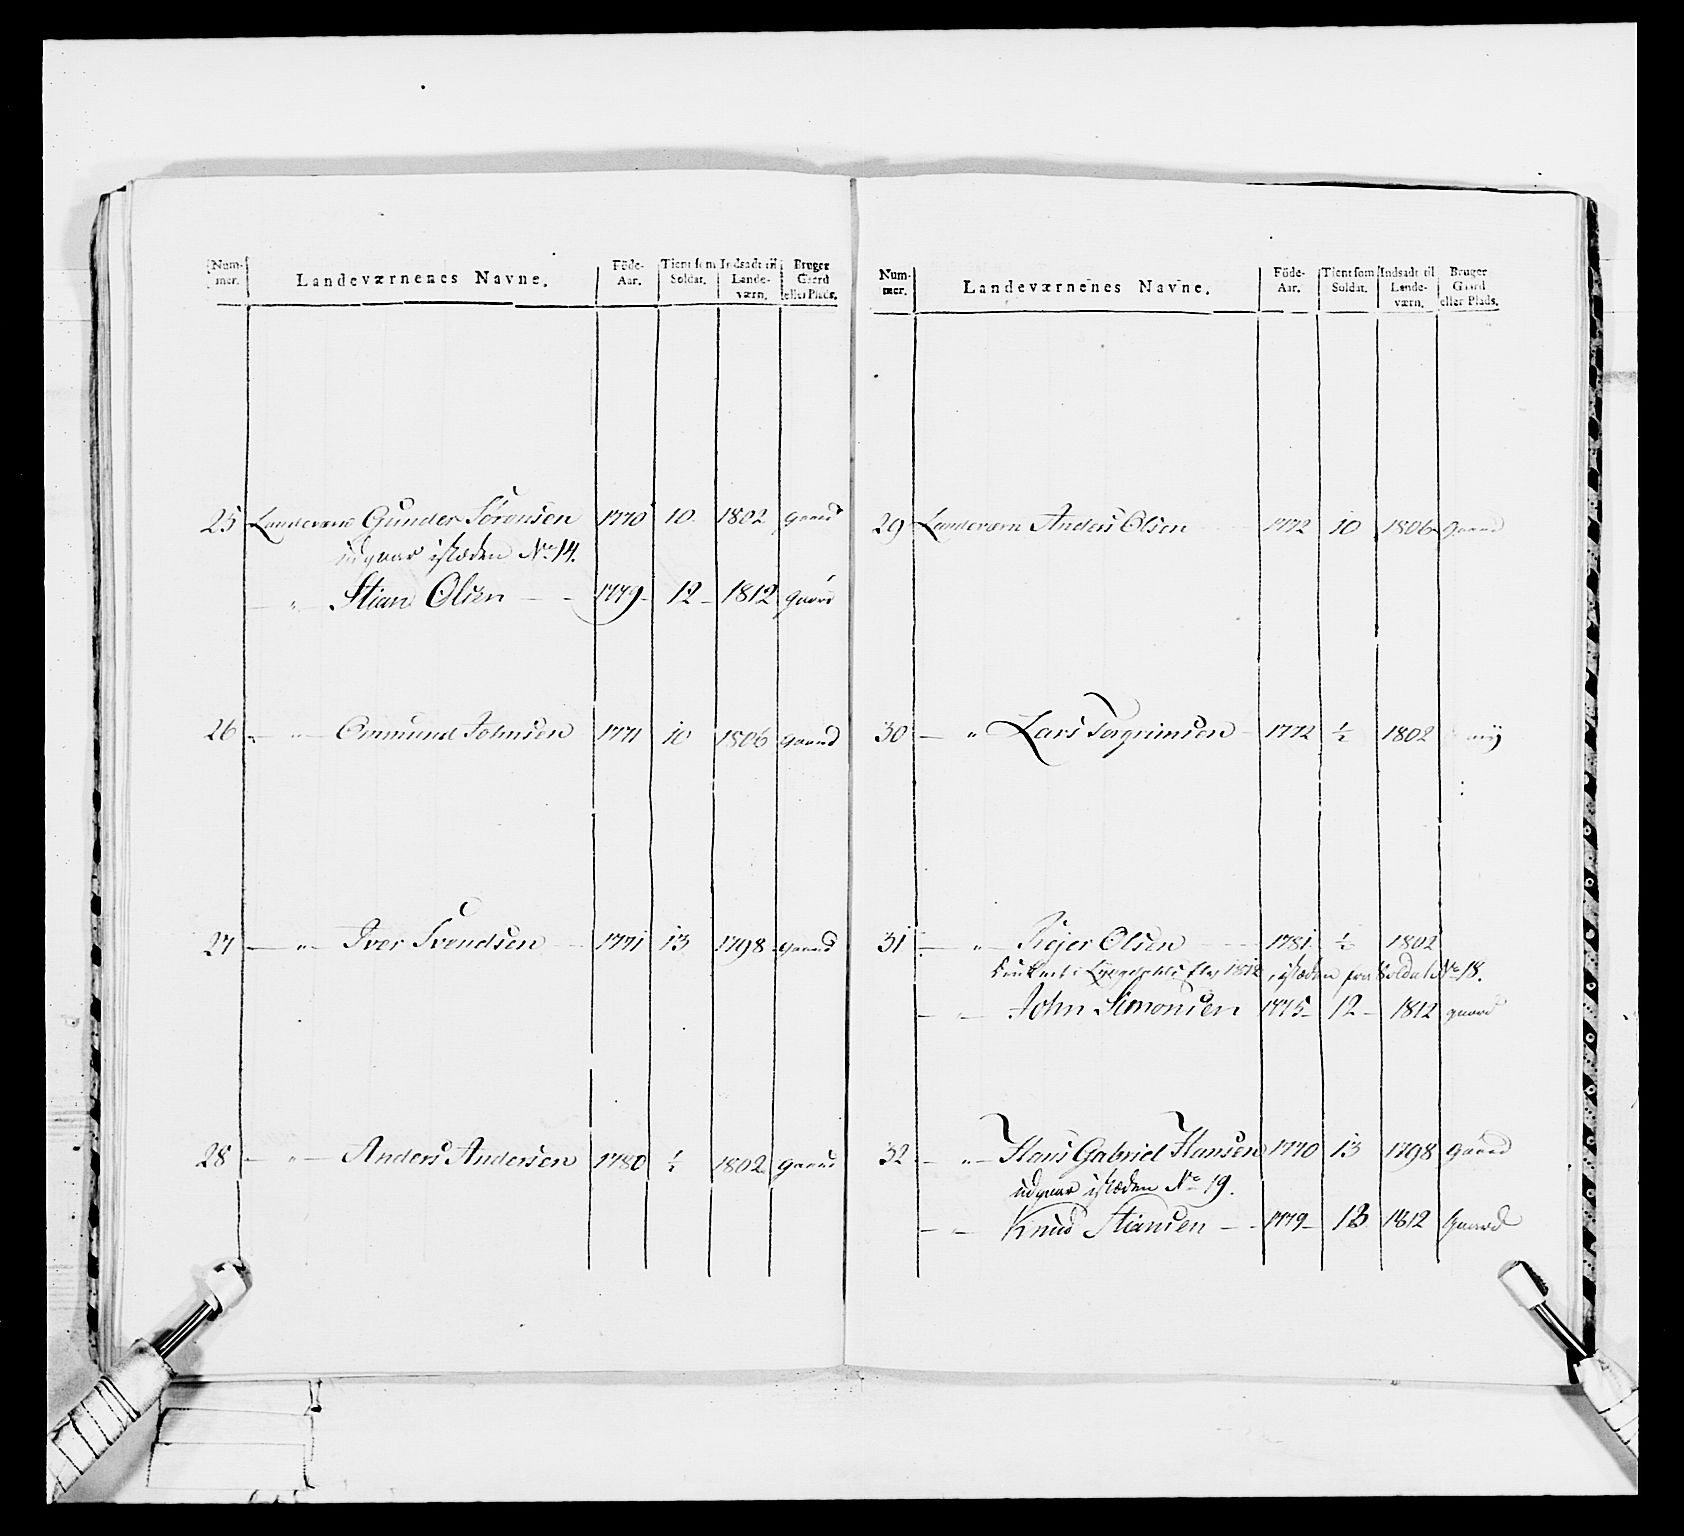 Num-mer. Landeværnenes Navne. Föde-Aar. Tient som Soldat. Indsadt til Lande-værn. Bruger Gaard eller Plads.
25 Landeværn Gunder Sørensen 1770 10 1802 gaard
udgaar istæden No 14.
— " — Stian Olsen — 1779 — 12 — 1812 gaard
26 — " — Ommund Johnsen 1771 10 1806 gaard
27 — " — Iver Svendsen 1771 13 1798 gaard
28 — " — Anders Andersen 1780 ½ 1802 gaard
Num-mer. Landeværnenes Navne. Föde-Aar. Tient som Soldat. Indsadt til Lande-værn. Bruger Gaard eller Plads.
29 Landeværn Anders Olsen 1772 10 1806 gaard
30 — " — Lars Torgrimsen 1772 ½ 1802
31 — " — Olsen 1781 ½ 1802
1812, istæden fra Soldat No 18.
— " — John Simonsen 1775 — 12 — 1812 gaard
32 — " — Hans Gabriel Hansen 1770 13 1798 gaard
udgaar istæden No 19.
— " — Knud Stiansen — 1779 — 13 1812 Gaard